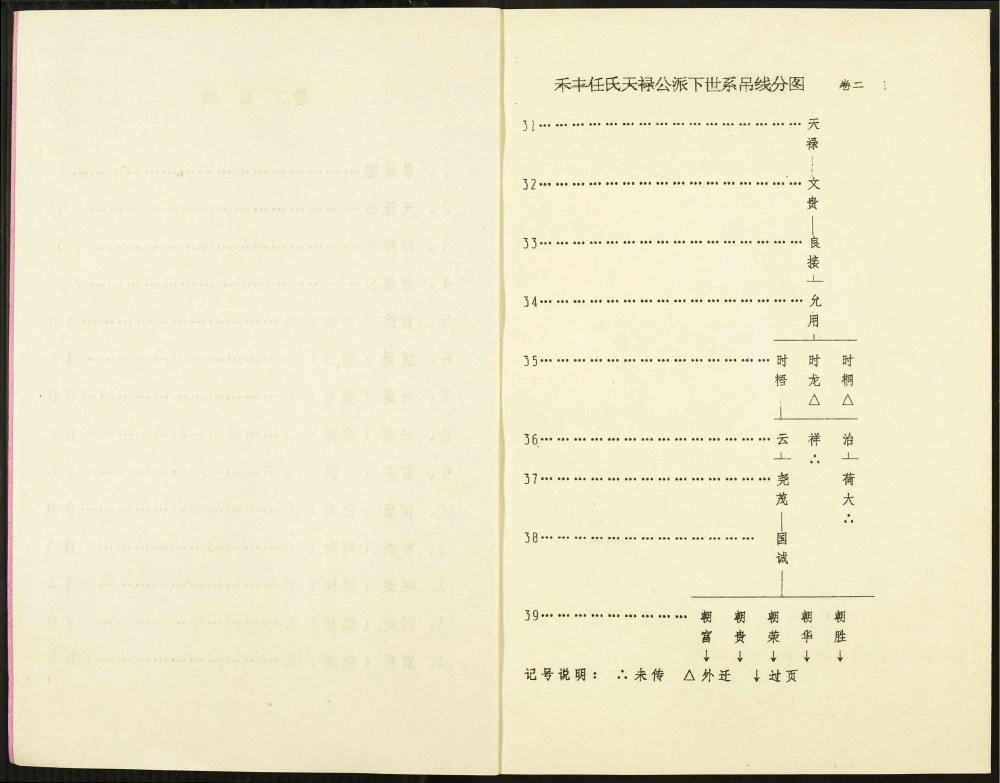 禾丰任氏天禄公派下世系吊线分图 卷二
31 天禄
32 文贵
33 良接
34 允用
35 时梧 时龙△ 时桐△
36 云 祥∴ 治
37 尧茂 荷大∴
38 国诚
39 朝富↓ 朝贵↓ 朝荣↓ 朝华↓ 朝胜↓
记号说明： ∴未传 △外迁 ↓过页